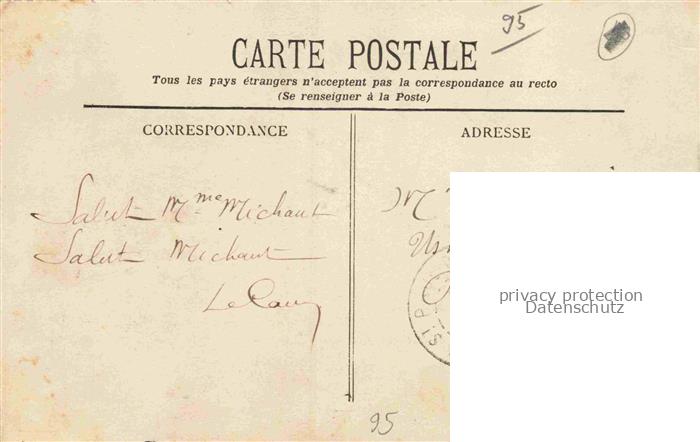 95
CARTE POSTALE
Tous les pays étrangers n'acceptent pas la correspondance au recto
(Se renseigner à la Poste)
CORRESPONDANCE
ADRESSE
Salut Mme Michaut
Salut Michaut
M
privacy protection
Datenschutz
95